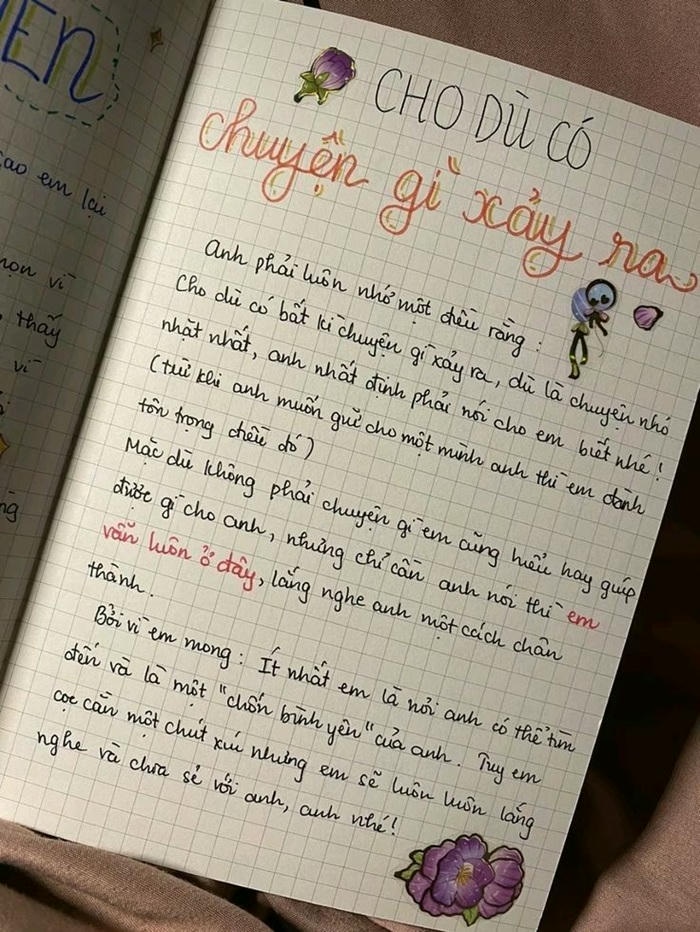 EN
sao em lại
họn vì
thấy
vì
ng
CHO DÙ CÓ
chuyện gì xảy ra
Anh phải luôn nhớ một điều rằng :
Cho dù có bất kì chuyện gì xảy ra, dù là chuyện nhỏ
nhặt nhất, anh nhất định phải nói cho em biết nhé !
(trừ khi anh muốn giữ cho một mình anh thì em đành
tôn trọng điều đó)
Mặc dù không phải chuyện gì em cũng hiểu hay giúp
được gì cho anh, nhưng chỉ cần anh nói thì em
vẫn luôn ở đây, lắng nghe anh một cách chân
thành.
Bởi vì em mong : Ít nhất em là nơi anh có thể tìm
đến và là một "chốn bình yên" của anh. Tuy em
cọc cằn một chút xíu nhưng em sẽ luôn luôn lắng
nghe và chia sẻ với anh, anh nhé!